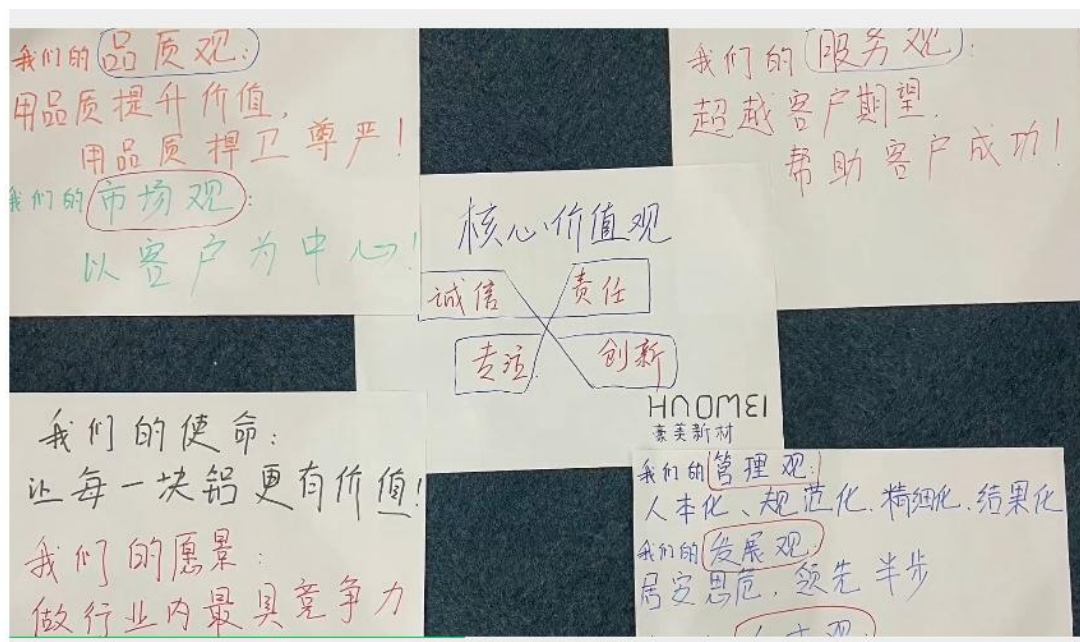 我们的品质观:
用品质提升价值,
用品质捍卫尊严!
我们的市场观:
以客户为中心!
我们的服务观:
超越客户期望,
帮助客户成功!
核心价值观
诚信 责任
专注 创新
HAOMEI
豪美新材
我们的使命:
让每一块铝更有价值!
我们的愿景:
做行业内最具竞争力
我们的管理观:
人本化、规范化、精细化、结果化
我们的发展观:
居安思危,领先半步